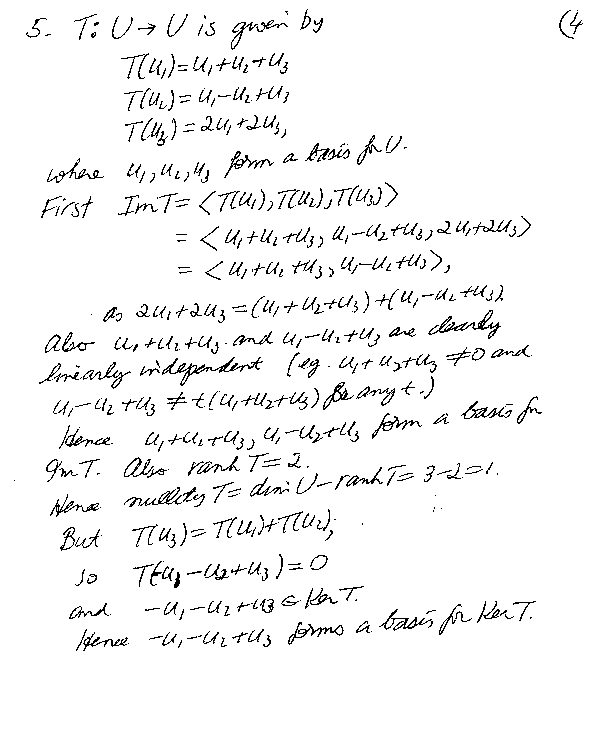 5. T: U → U is given by (4
T(u₁)=u₁+u₂+u₃
T(u₂)=u₁-u₂+u₃
T(u₃)=2u₁+2u₃,
where u₁,u₂,u₃ form a basis for U.
First Im T = ⟨T(u₁),T(u₂),T(u₃)⟩
= ⟨u₁+u₂+u₃, u₁-u₂+u₃, 2u₁+2u₃⟩
= ⟨u₁+u₂+u₃, u₁-u₂+u₃⟩,
as 2u₁+2u₃=(u₁+u₂+u₃)+(u₁-u₂+u₃).
Also u₁+u₂+u₃ and u₁-u₂+u₃ are clearly
linearly independent (eg. u₁+u₂+u₃ ≠0 and
u₁-u₂+u₃ ≠ t(u₁+u₂+u₃) for any t.)
Hence u₁+u₂+u₃, u₁-u₂+u₃ form a basis for
Im T. Also rank T=2.
Hence nullity T= dim U - rank T= 3-2=1.
But T(u₃)=T(u₁)+T(u₂),
so T(-u₁-u₂+u₃)=0
and -u₁-u₂+u₃ ∈ Ker T.
Hence -u₁-u₂+u₃ forms a basis for Ker T.